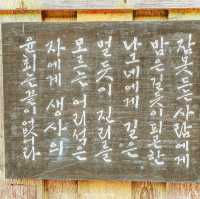 잠못드는 사람에게
밤은 길듯이 피곤한
나그네에게 길은
멀듯이 진리를
모르는 어리석은
자에게 생사의
윤회는 끝이 없어라